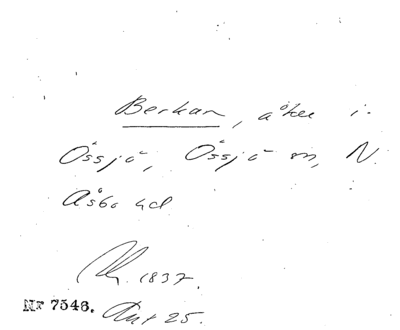 Berkan, åker i
Össjö, Össjö sn, N.
Åsbo hd
1837.
Nr 7546. Ant 25.